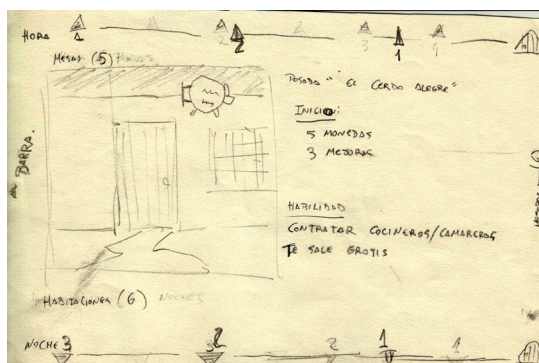 HORA 1 2 2 3 1 1
MESAS (5) HORAS
POSADA "EL CERDO ALEGRE"
INICIO:
5 MONEDAS
3 MEJORAS
BARRA.
HABILIDAD
CONTRATAR COCINEROS/CAMAREROS
TE SALE GRATIS
HABITACIONES (6) NOCHES
NOCHE 3 3 2 2 1 1